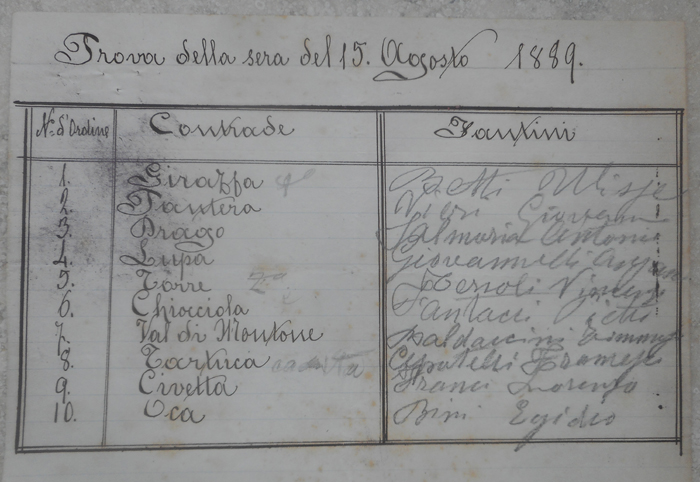 Prova della sera del 15. Agosto 1889.
N.o d'Ordine Contrade Fantini
1. Giraffa 4o Betti Ulisse
2. Pantera Viligi Giovanni
3. Drago Salmoria Antonio
4. Lupa Giovannelli
5. Torre 2o Vincenzo
6. Chiocciola
7. Val di Montone Baldaccini
8. Tartuca Francesco
9. Civetta Franci Lorenzo
10. Oca Bini Egidio